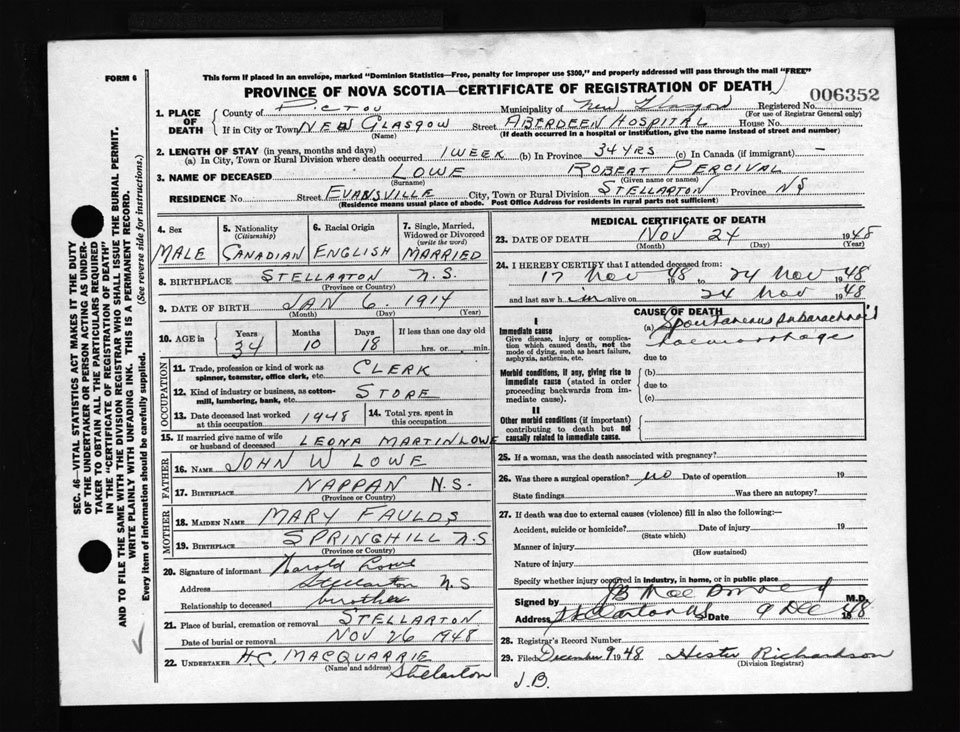 FORM 6
This form if placed in an envelope, marked "Dominion Statistics—Free, penalty for improper use $300," and properly addressed will pass through the mail "FREE"
PROVINCE OF NOVA SCOTIA—CERTIFICATE OF REGISTRATION OF DEATH
006352
1. PLACE OF DEATH
County of PICTOU Municipality of New Glasgow Registered No.
(For use of Registrar General only)
If in City or Town NEW GLASGOW Street ABERDEEN HOSPITAL House No.
(Name) (If death occurred in a hospital or institution, give the name instead of street and number)
2. LENGTH OF STAY (in years, months and days)
(a) In City, Town or Rural Division where death occurred 1 WEEK (b) In Province 34 YRS (c) In Canada (if immigrant) —
3. NAME OF DECEASED LOWE ROBERT PERCIVAL
(Surname) (Given name or names)
RESIDENCE No. Street EVANSVILLE City, Town or Rural Division STELLARTON Province NS
(Residence means usual place of abode. Post Office Address for residents in rural parts not sufficient)
4. Sex
MALE
5. Nationality
(Citizenship)
CANADIAN
6. Racial Origin
ENGLISH
7. Single, Married, Widowed or Divorced
(write the word)
MARRIED
8. BIRTHPLACE STELLARTON N.S.
(Province or Country)
9. DATE OF BIRTH JAN 6 1914
(Month) (Day) (Year)
10. AGE in Years Months Days If less than one day old
34 10 18 hrs. or min.
OCCUPATION
11. Trade, profession or kind of work as spinner, teamster, office clerk, etc. CLERK
12. Kind of industry or business, as cotton-mill, lumbering, bank, etc. STORE
13. Date deceased last worked at this occupation 1948
14. Total yrs. spent in this occupation
15. If married give name of wife or husband of deceased LEONA MARTIN LOWE
FATHER
16. NAME JOHN W LOWE
17. BIRTHPLACE NAPPAN N.S.
(Province or Country)
MOTHER
18. MAIDEN NAME MARY FAULDS
19. BIRTHPLACE SPRINGHILL N.S
(Province or Country)
20. Signature of informant Harold Lowe
Address Stellarton N.S
Relationship to deceased brother
21. Place of burial, cremation or removal STELLARTON
Date of burial or removal NOV 26 1948
22. UNDERTAKER H.C. MACQUARRIE
(Name and address) Stellarton
MEDICAL CERTIFICATE OF DEATH
23. DATE OF DEATH NOV 24 1948
(Month) (Day) (Year)
24. I HEREBY CERTIFY that I attended deceased from:
17 Nov 1948 to 24 Nov 1948
and last saw him alive on 24 Nov 1948
CAUSE OF DEATH
I
Immediate cause
Give disease, injury or complication which caused death, not the mode of dying, such as heart failure, asphyxia, asthenia, etc.
(a) Spontaneous subarachnoid
haemorrhage
due to
Morbid conditions, if any, giving rise to immediate cause (stated in order proceeding backwards from immediate).
(b)
due to
(c)
II
Other morbid conditions (if important) contributing to death but not causally related to immediate cause.
25. If a woman, was the death associated with pregnancy?
26. Was there a surgical operation? no Date of operation 19
State findings Was there an autopsy?
27. If death was due to external causes (violence) fill in also the following:—
Accident, suicide or homicide? Date of injury 19
(State which)
Manner of injury
(How sustained)
Nature of injury
Specify whether injury occurred in industry, in home, or in public place
Signed by M.D.
Address Date 9 Dec 1948
28. Registrar's Record Number
29. Filed December 9 1948 Hester Richardson
(Division Registrar)
J.B.
SEC. 46—VITAL STATISTICS ACT MAKES IT THE DUTY OF THE UNDERTAKER OR PERSON ACTING AS UNDERTAKER TO OBTAIN ALL THE PARTICULARS REQUIRED IN THE "CERTIFICATE OF REGISTRATION OF DEATH" AND TO FILE THE SAME WITH THE DIVISION REGISTRAR WHO SHALL ISSUE THE BURIAL PERMIT.
WRITE PLAINLY WITH UNFADING INK. THIS IS A PERMANENT RECORD.
Every item of information should be carefully supplied. (See reverse side for instructions.)